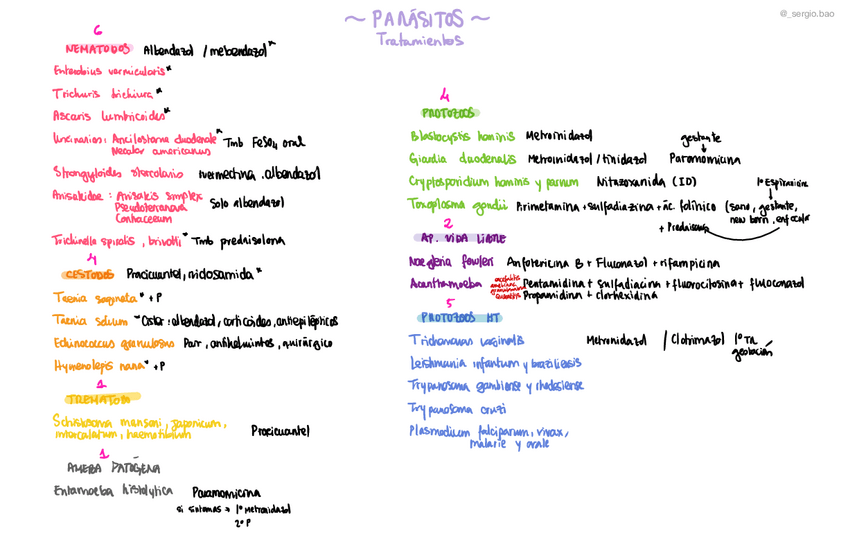 @_sergio.bao
~ PARÁSITOS ~
Tratamientos
6
NEMATODOS Albendazol / mebendazol*
Enterobius vermicularis*
Trichuris trichiura*
Ascaris lumbricoides*
Uncinarias: Ancilostoma duodenale* Tmb FeSO4 oral
Necator americanus
Strongyloides stercolaris ivermectina, albendazol
Anisakidae: Anisakis simplex
Pseudoterranova Solo albendazol
Contracecum
Trichinella spiralis, britovi* Tmb prednisolona
4
CESTODOS Pracicuantel, niclosamida*
Taenia saginata* + P
Taenia solium *Cister: albendazol, corticoides, antiepilépticos
Echinococcus granulosus Pair, antihelmintos, quirúrgico
Hymenolepis nana* + P
1
TREMATODO
Schistosoma mansoni, japonicum,
intercalatum, haematobium Pracicuantel
1
AMEBA PATÓGENA
Entamoeba histolytica Paramomicina
si síntomas → 1º Metronidazol
2º P
4
PROTOZOOS
Blastocystis hominis Metronidazol
gestante
Giardia duodenalis Metronidazol / tinidazol Paromomicina
Cryptosporidium hominis y parvum Nitazoxanida (ID)
1º Espiramicina
Toxoplasma gondii Pirimetamina + sulfadiazina + ác folínico (sano, gestante,
new born, enf ocular
+ Prednisona
2
AP. VIDA LIBRE
Naegleria fowleri Anfotericina B + Fluconazol + rifampicina
Acanthamoeba encefalitis amebiana granulomatosa Pentamidina + sulfadiacina + fluorocitosina + fluconazol
queratitis Propamidina + clorhexidina
5
PROTOZOOS HT
Trichomonas vaginalis Metronidazol / Clotrimazol 1º TR
gestación
Leishmania infantum y braziliensis
Trypanosoma gambiense y rhodesiense
Trypanosoma cruzi
Plasmodium falciparum, vivax,
malarie y ovale